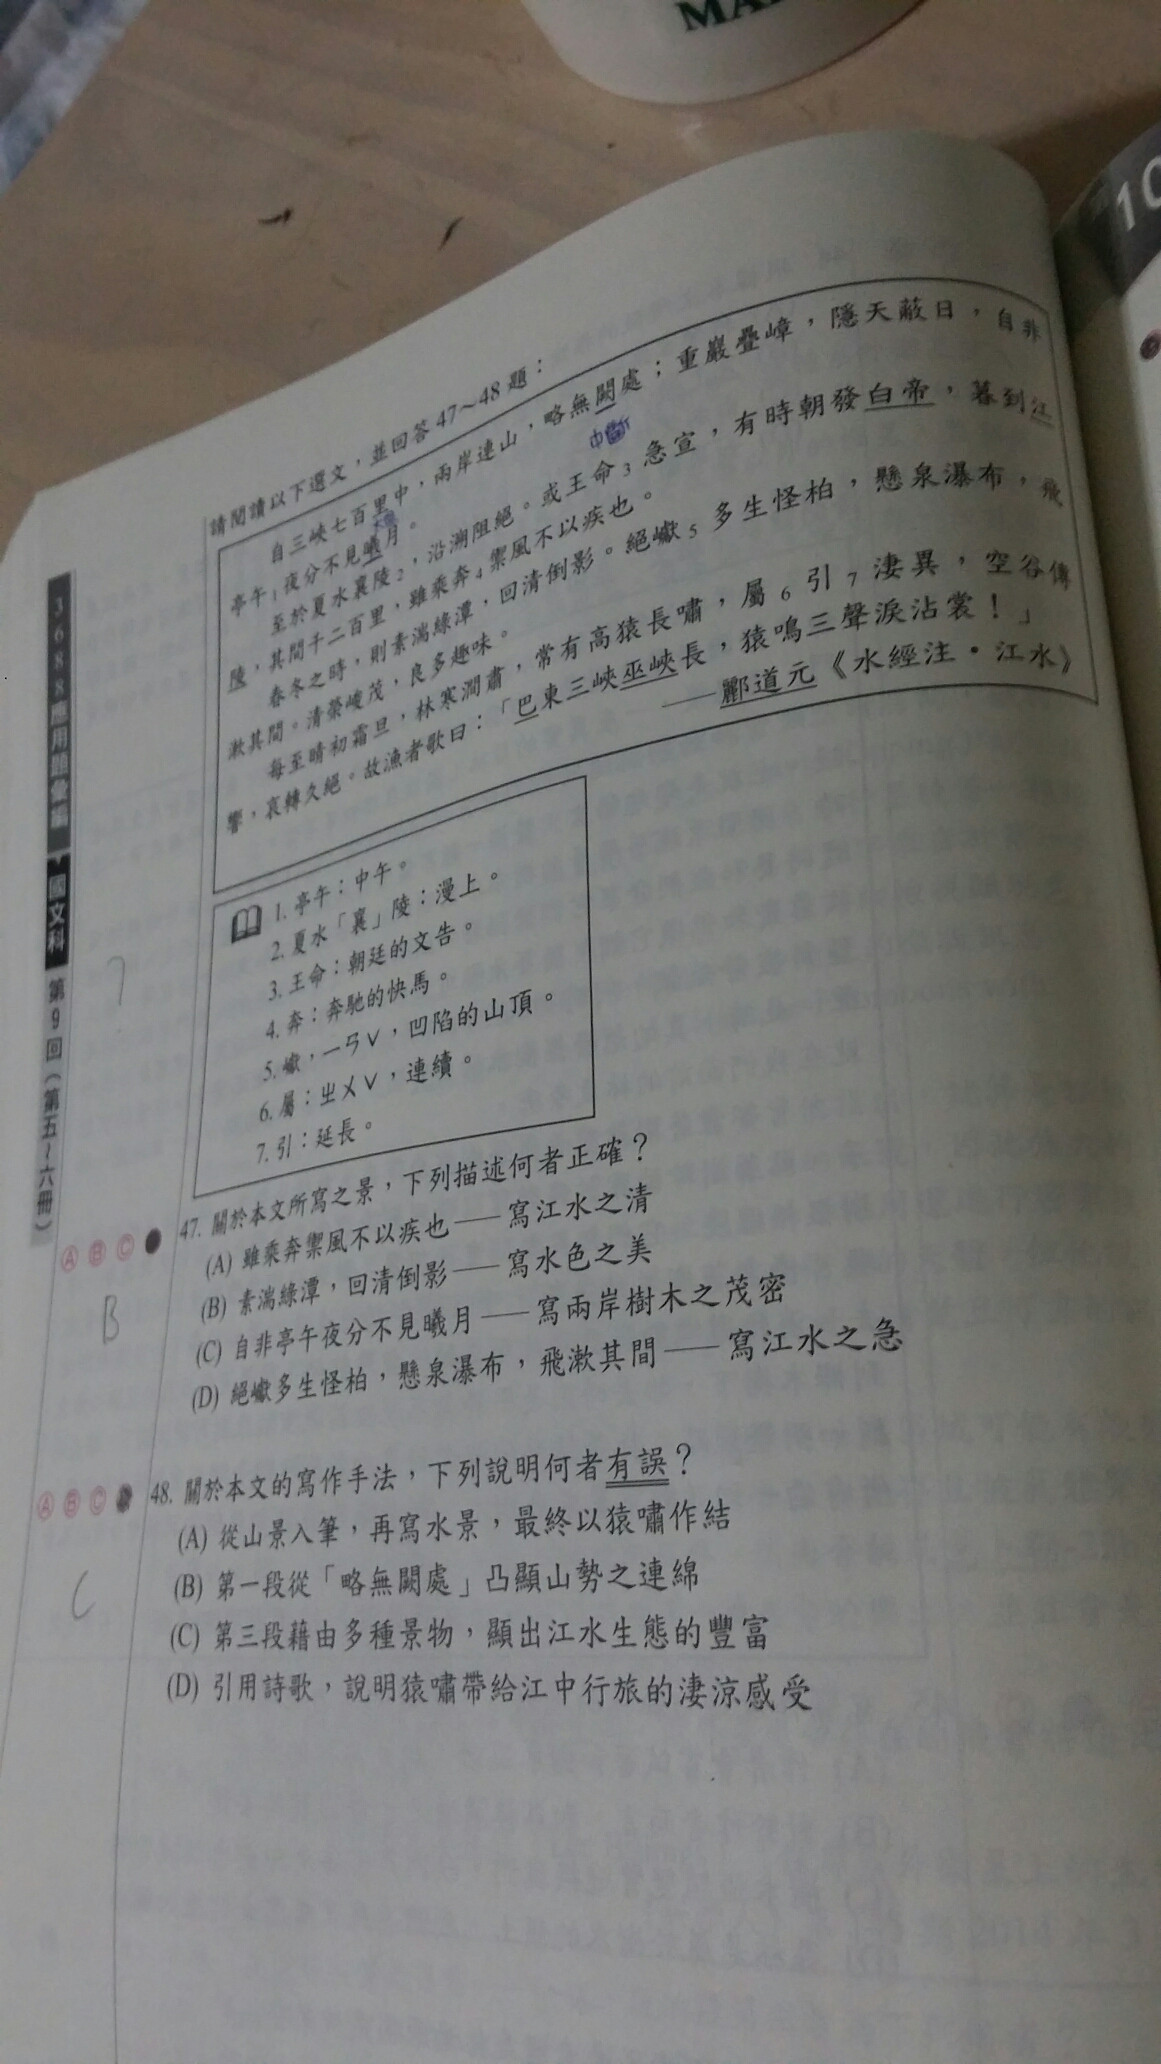 MA
10
請閱讀以下選文，並回答47～48題：
自三峽七百里中，兩岸連山，略無闕處；重巖疊嶂，隱天蔽日，自非
中斷
亭午1夜分不見曦月。
至於夏水襄陵2，沿溯阻絕。或王命3急宣，有時朝發白帝，暮到江
陵，其間千二百里，雖乘奔4禦風不以疾也。
春冬之時，則素湍綠潭，回清倒影。絕巘5多生怪柏，懸泉瀑布，飛
漱其間。清榮峻茂，良多趣味。
每至晴初霜旦，林寒澗肅，常有高猿長嘯，屬6引7淒異，空谷傳
響，哀轉久絕。故漁者歌曰：「巴東三峽巫峽長，猿鳴三聲淚沾裳！」
——酈道元《水經注·江水》
1. 亭午：中午。
2. 夏水「襄」陵：漫上。
3. 王命：朝廷的文告。
4. 奔：奔馳的快馬。
5. 巘，ㄧㄢˇ，凹陷的山頂。
6. 屬：ㄓㄨˇ，連續。
7. 引：延長。
3688應用題彙編 國文科 第9回（第五～六冊）
?
Ⓐ Ⓑ Ⓒ
47. 關於本文所寫之景，下列描述何者正確？
(A) 雖乘奔禦風不以疾也——寫江水之清
(B) 素湍綠潭，回清倒影——寫水色之美
B
(C) 自非亭午夜分不見曦月——寫兩岸樹木之茂密
(D) 絕巘多生怪柏，懸泉瀑布，飛漱其間——寫江水之急
Ⓐ Ⓑ Ⓒ
48. 關於本文的寫作手法，下列說明何者有誤？
(A) 從山景入筆，再寫水景，最終以猿嘯作結
(B) 第一段從「略無闕處」凸顯山勢之連綿
C
(C) 第三段藉由多種景物，顯出江水生態的豐富
(D) 引用詩歌，說明猿嘯帶給江中行旅的淒涼感受